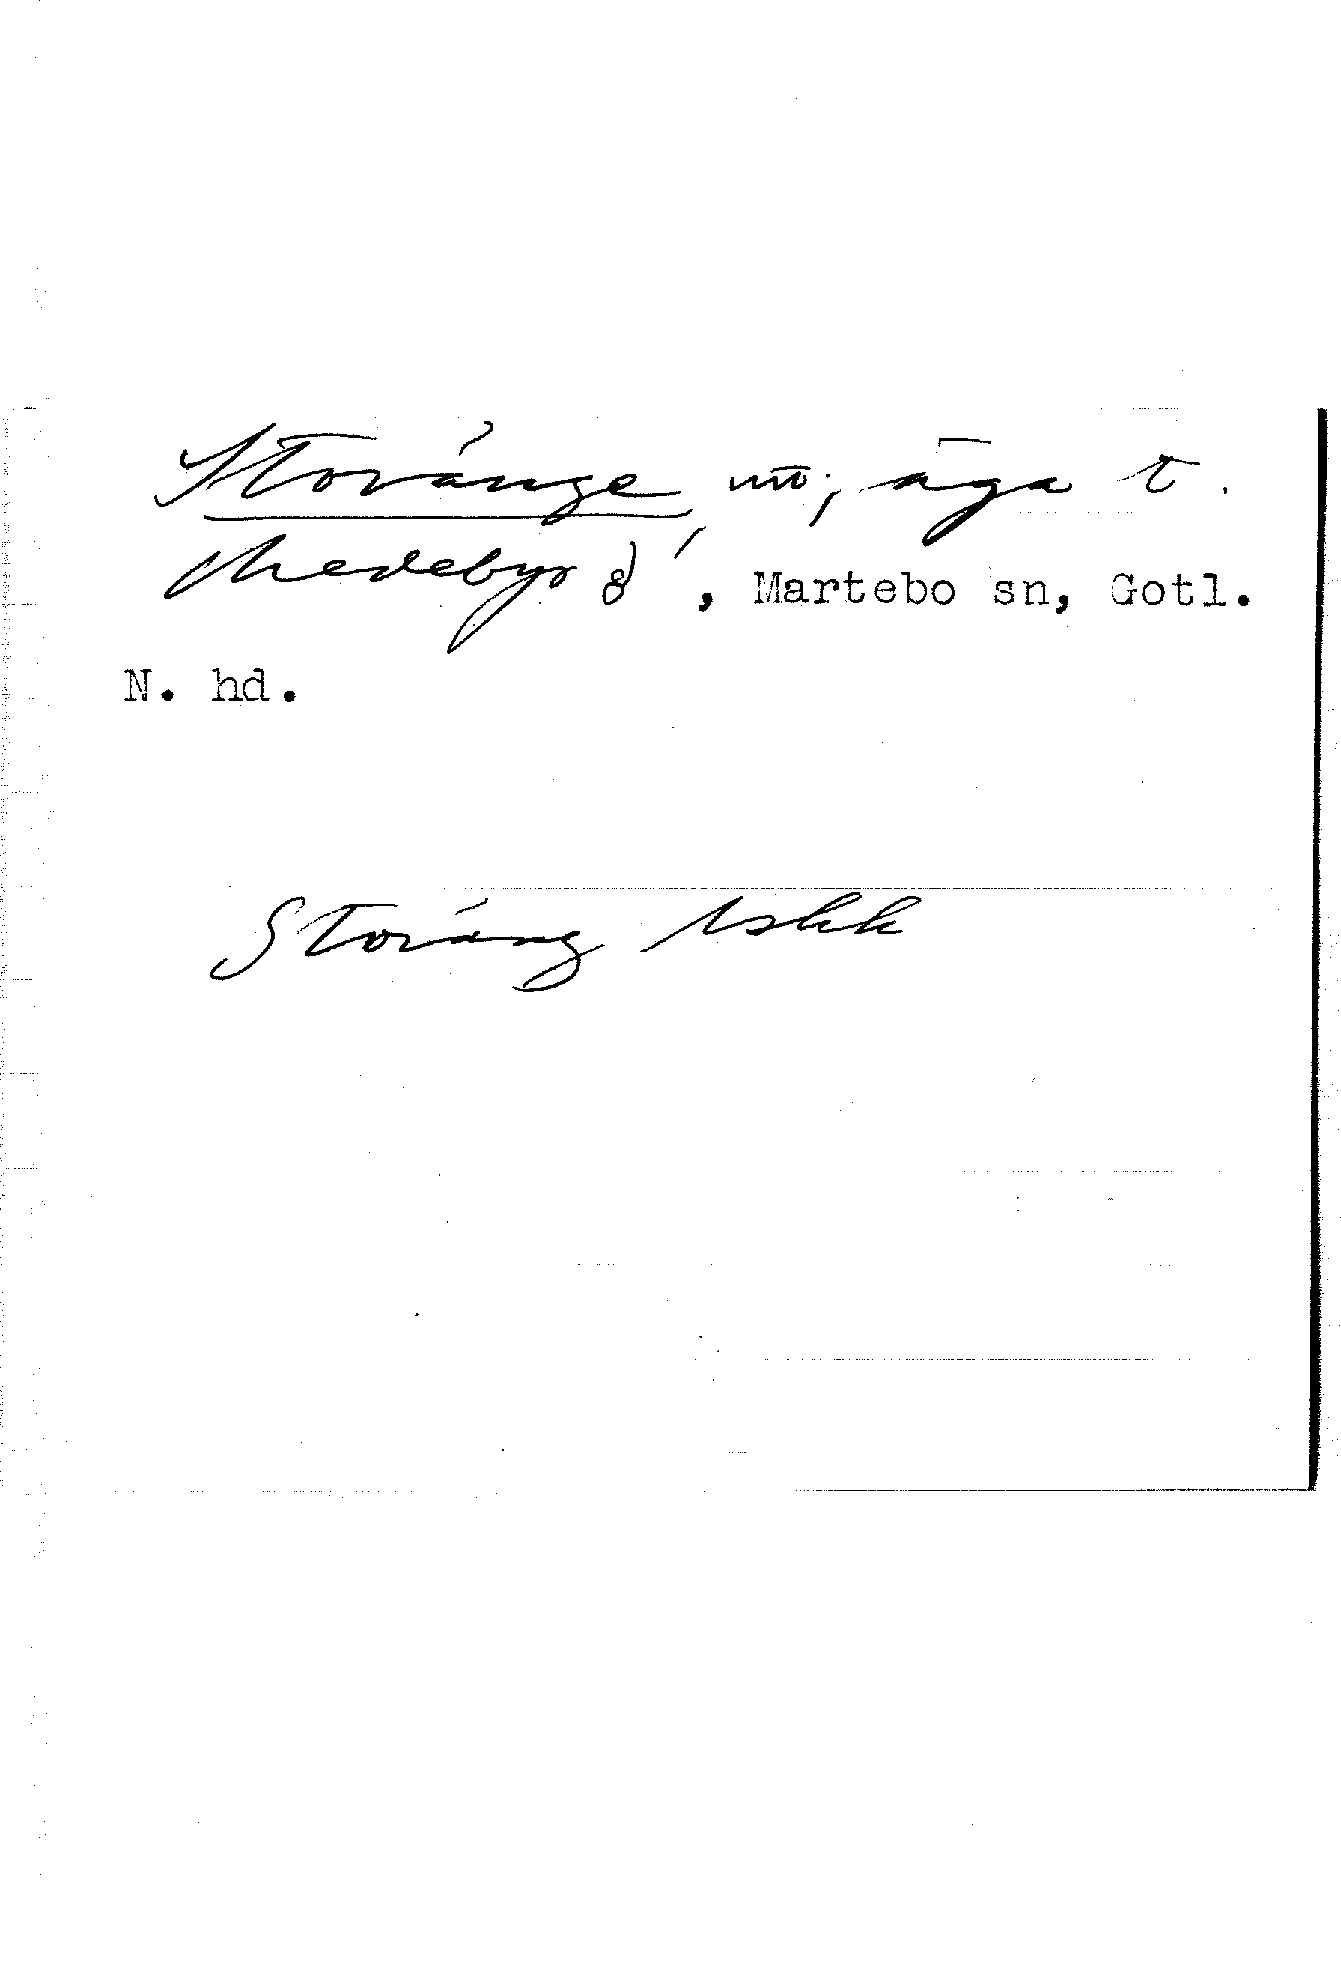 Storänge, mo; äga t.
Medebys gd, Martebo sn, Gotl.
N. hd.
Storäng Uskk